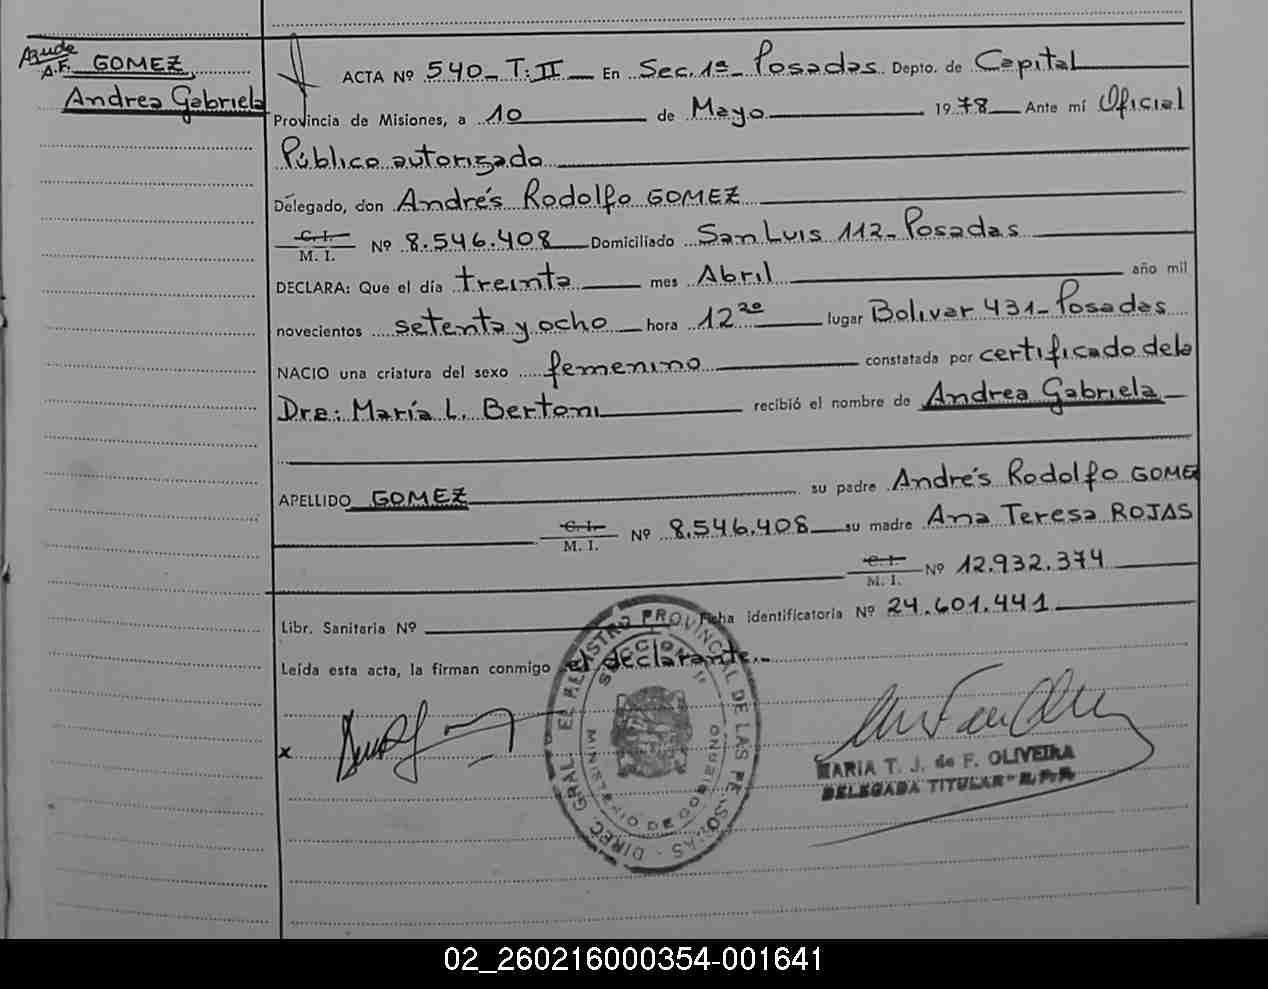 Ayuda
A.F. GOMEZ
Andrea Gabriela
ACTA Nº 540 - T: II En Sec. 1ª - Posadas Depto. de Capital
Provincia de Misiones, a 10 de Mayo 1978 Ante mí Oficial
Público autorizado
Delegado, don Andrés Rodolfo GOMEZ
C. I.
M. I. Nº 8.546.408 Domiciliado San Luis 112 - Posadas
DECLARA: Que el día treinta mes Abril año mil
novecientos setenta y ocho hora 12 20 lugar Bolivar 431 - Posadas
NACIO una criatura del sexo femenino constatada por certificado de la
Dra: María L. Bertoni recibió el nombre de Andrea Gabriela
APELLIDO GOMEZ su padre Andrés Rodolfo GOMEZ
C. I.
M. I. Nº 8.546.408 su madre Ana Teresa ROJAS
C. I.
M. I. Nº 12.932.374
Libr. Sanitaria Nº Ficha identificatoria Nº 24.601.441
Leída esta acta, la firman conmigo el declarante.
x
DIREC. GRAL. EL REGISTRO PROVINCIAL DE LAS PERSONAS
SECCION 1ª
MINISTERIO DE GOBIERNO
MARIA T. J. de F. OLIVEIRA
DELEGADA TITULAR - R.P.P.
02_260216000354-001641